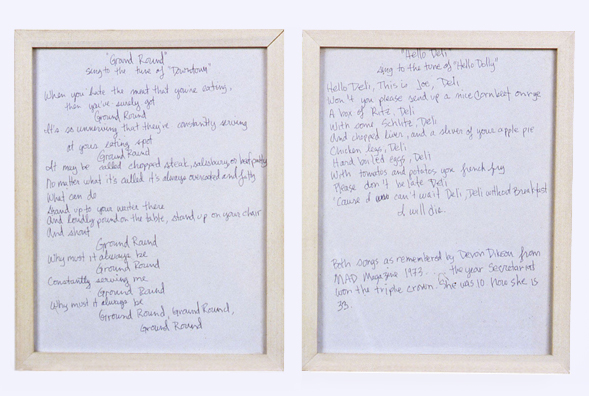 "Ground Round"
sing to the tune of "Downtown"
When you hate the meat that you're eating,
then you've surely got
Ground Round
It's so unnerving that they're constantly serving
at your eating spot
Ground Round
It may be called chopped steak, salisbury, or beef patty
No matter what it's called it's always overcooked and fatty
What can do
Stand up to your waiter there
and loudly pound on the table, stand up on your chair
and shout
Ground Round
Why must it always be
Ground Round
Constantly serving me
Ground Round
Why must it always be
Ground Round, Ground Round,
Ground Round
"Hello Deli"
sing to the tune of "Hello Dolly"
Hello Deli, This is Joe, Deli
Won't you please send up a nice Corn beef on rye
A box of Ritz, Deli
With some Schlitz, Deli
and chopped liver, and a sliver of your apple pie
Chicken legs, Deli
Hard boiled eggs, Deli
With tomatos and potatos you french fry
Please don't be late Deli
'Cause I can't wait Deli, Deli without Breakfast
I will die.
Both songs as remembered by Devon Dikeou from
MAD Magazine 1973... the year Secretariat
won the triple crown. She was 10 Now she is
33.